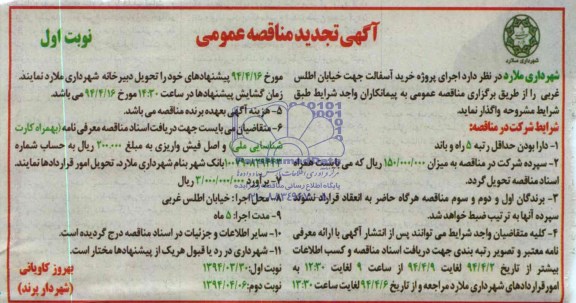 آگهی تجدید مناقصه عمومی
نوبت اول
شهرداری ملارد
شهرداری ملارد در نظر دارد اجرای پروژه خرید آسفالت جهت خیابان اطلس
غربی را از طریق برگزاری مناقصه عمومی به پیمانکاران واجد شرایط طبق
شرایط مشروحه واگذار نماید.
شرایط شرکت در مناقصه:
۱- دارا بودن حداقل رتبه ۵ راه و باند
۲- سپرده شرکت در مناقصه به میزان ۱۵۰/۰۰۰/۰۰۰ ریال که می بایست همراه
اسناد مناقصه تحویل گردد.
۳- برندگان اول و دوم و سوم مناقصه هرگاه حاضر به انعقاد قرارداد نشوند
سپرده آنها به ترتیب ضبط خواهد شد.
۴- کلیه متقاضیان واجد شرایط می توانند پس از انتشار آگهی با ارائه معرفی
نامه معتبر و تصویر رتبه بندی جهت دریافت اسناد مناقصه و کسب اطلاعات
بیشتر از تاریخ ۹۴/۴/۲ لغایت ۹۴/۴/۹ از ساعت ۹ لغایت ۱۲:۳۰ به
امور قراردادهای شهرداری ملارد مراجعه و از تاریخ ۹۴/۴/۶ لغایت ساعت ۱۳:۳۰
مورخ ۹۴/۴/۱۶ پیشنهادهای خود را تحویل دبیرخانه شهرداری ملارد نمایند.
زمان گشایش پیشنهادها در ساعت ۱۴:۳۰ مورخ ۹۴/۴/۱۶ می باشد.
۵- هزینه آگهی بعهده برنده مناقصه می باشد.
۶- متقاضیان می بایست جهت دریافت اسناد مناقصه معرفی نامه (بهمراه کارت
شناسایی ملی) و اصل فیش واریزی به مبلغ ۳۰۰/۰۰۰ ریال به حساب شماره
بانک شهر بنام شهرداری ملارد، تحویل امور قراردادها نمایند.
۷- برآورد ۳/۰۰۰/۰۰۰/۰۰۰ ریال
۸- محل اجرا: خیابان اطلس غربی
۹- مدت اجرا: ۵ ماه
۱۰- سایر اطلاعات و جزئیات در اسناد مناقصه درج گردیده است.
۱۱- شهرداری در رد یا قبول هریک از پیشنهادها مختار است.
نوبت اول: ۱۳۹۴/۰۳/۳۰
نوبت دوم: ۱۳۹۴/۰۴/۰۶
بهروز کاویانی
(شهردار پرند)